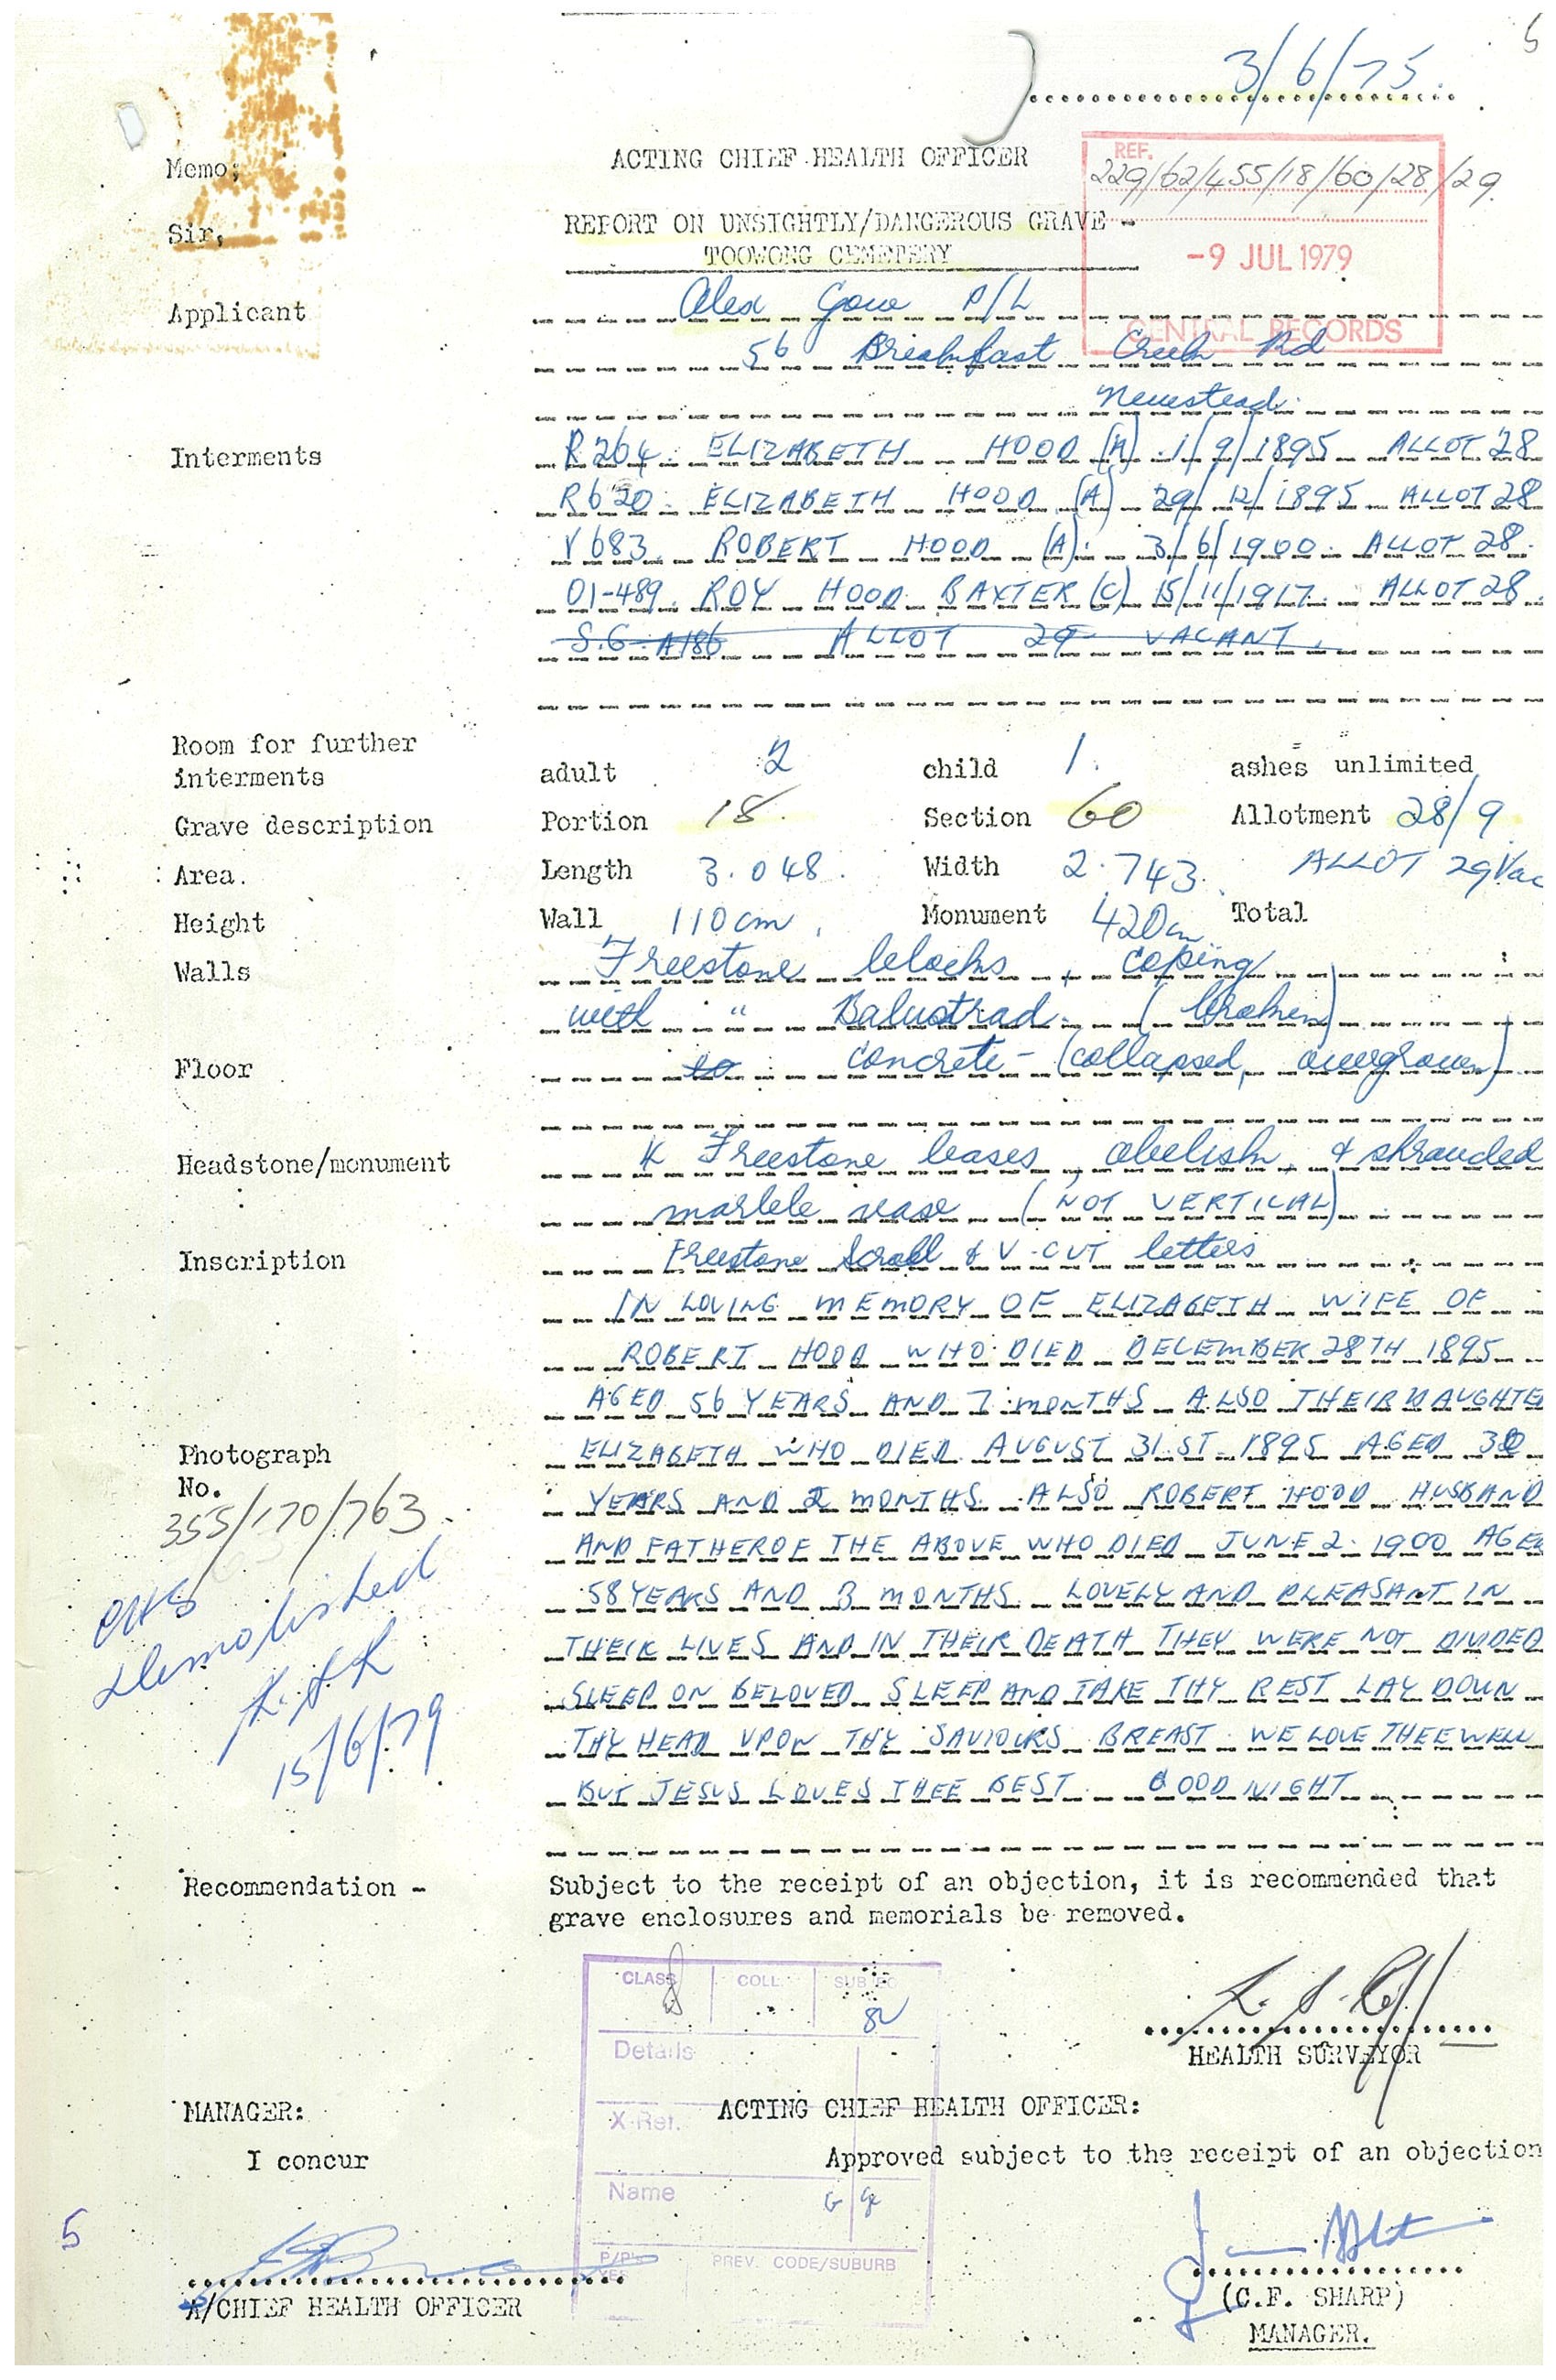 5
3/6/75.
Memo; ACTING CHIEF HEALTH OFFICER
REF.
229/62/455/18/60/28/29.
Sir, REPORT ON UNSIGHTLY/DANGEROUS GRAVE -
TOOWONG CEMETERY
-9 JUL 1979
CENTRAL RECORDS
Applicant Alex Gow P/L
56 Breakfast Creek Rd
Newstead.
Interments R264. ELIZABETH HOOD (A) 1/9/1895 ALLOT 28
R620. ELIZABETH HOOD (A) 29/12/1895 ALLOT 28
V683. ROBERT HOOD (A). 3/6/1900. ALLOT 28.
01-489. ROY HOOD BAXTER (C) 15/11/1917. ALLOT 28.
S.G. A186 ALLOT 29 VACANT.
Room for further
interments adult 2 child 1. ashes unlimited
Grave description Portion 18. Section 60 Allotment 28/9
Area. Length 3.048. Width 2.743. ALLOT 29 Vac
Height Wall 110cm, Monument 420cm Total
Walls Freestone blocks, coping
with " Balustrad. (broken)
Floor concrete - (collapsed, overgrown)
Headstone/monument Freestone bases, obelish, & shrouded
marble vase (NOT VERTICAL)
Inscription Freestone Scroll & V-CUT letters
IN LOVING MEMORY OF ELIZABETH WIFE OF
ROBERT HOOD WHO DIED DECEMBER 28TH 1895
AGED 56 YEARS AND 7 MONTHS ALSO THEIR DAUGHTE
Photograph ELIZABETH WHO DIED AUGUST 31.ST 1895 AGED 30
No. YEARS AND 2 MONTHS. ALSO ROBERT HOOD HUSBAND
355/170/763.
AND FATHER OF THE ABOVE WHO DIED JUNE 2. 1900 AGED
58 YEARS AND 3 MONTHS LOVELY AND PLEASANT IN
THEIR LIVES AND IN THEIR DEATH THEY WERE NOT DIVIDED
SLEEP ON BELOVED SLEEP AND TAKE THY REST LAY DOWN
THY HEAD UPON THY SAVIOURS BREAST WE LOVE THEE WELL
BUT JESUS LOVES THEE BEST. GOOD NIGHT
Demolished
15/6/79
Recommendation - Subject to the receipt of an objection, it is recommended that
grave enclosures and memorials be removed.
CLASS COLL. SUB
Details
HEALTH SURVEYOR
MANAGER: ACTING CHIEF HEALTH OFFICER:
X-Ref.
I concur Approved subject to the receipt of an objection
Name
5
P/P's PREV. CODE/SUBURB
YES
A/CHIEF HEALTH OFFICER (C.F. SHARP)
MANAGER.